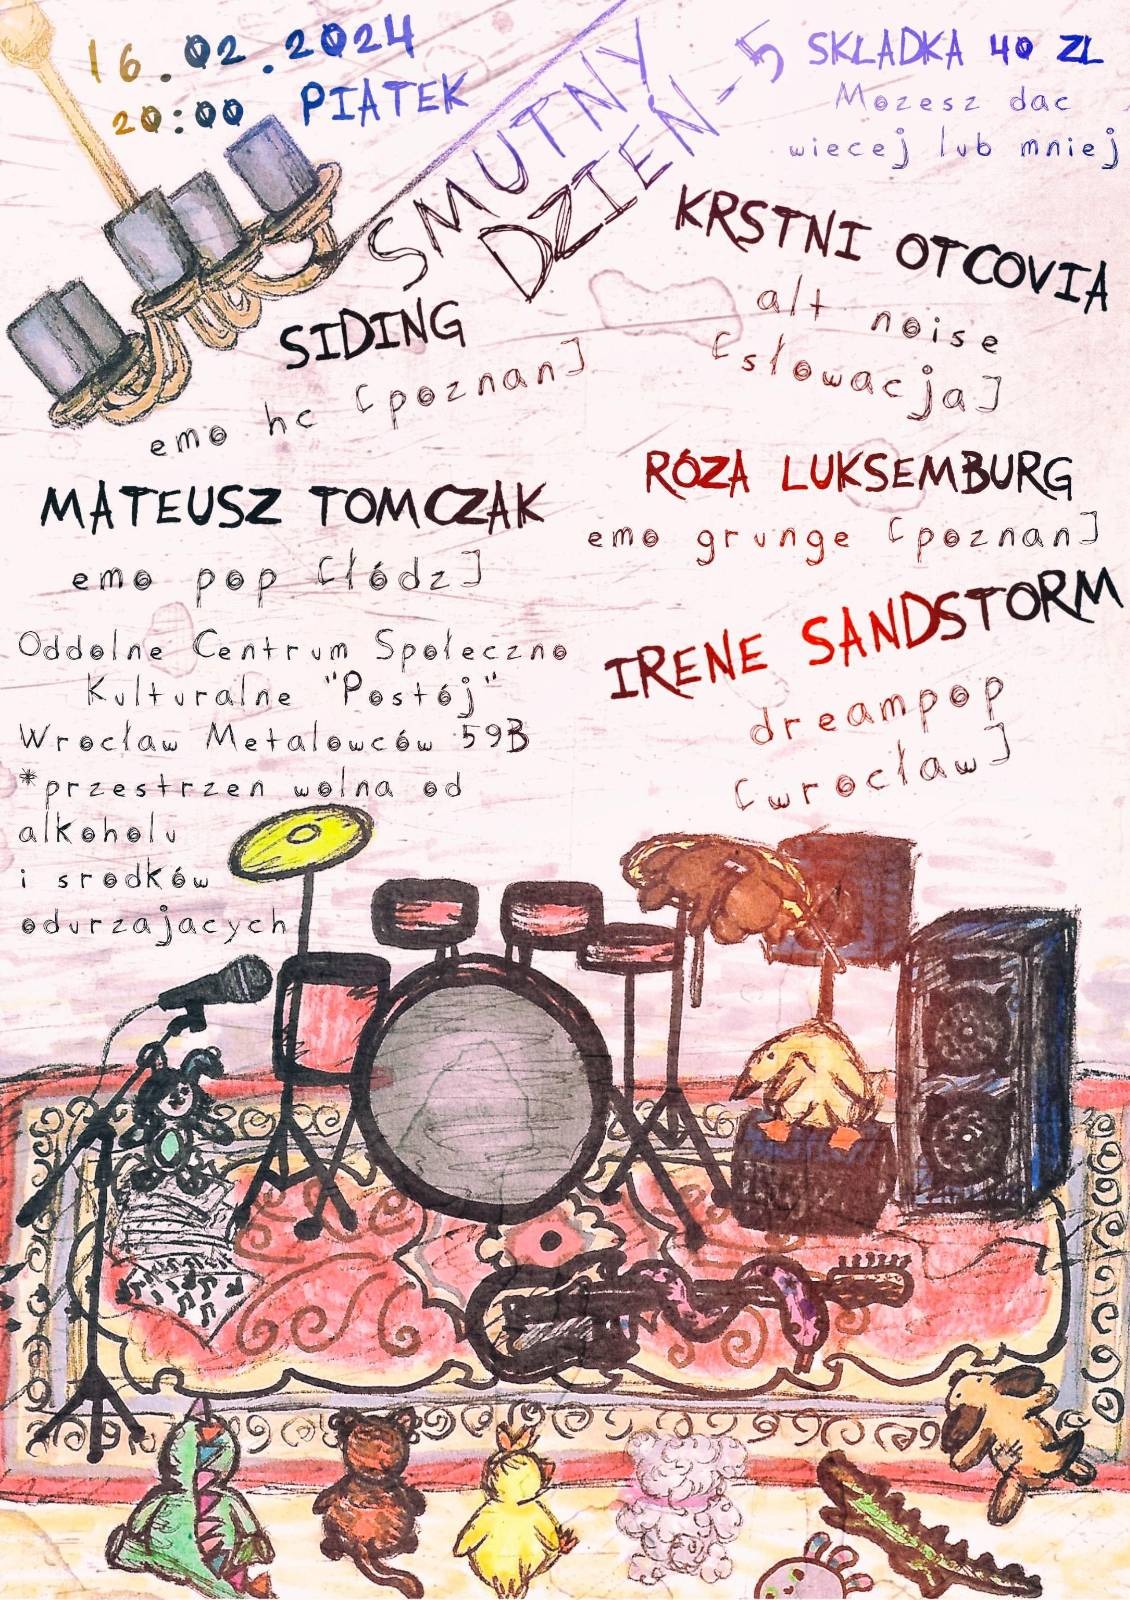 16.02.2024
20:00 PIATEK
SMUTNY
DZIEŃ-5
SKLADKA 40 ZL
Mozesz dac
wiecej lub mniej
SIDING
emo hc [poznan]
KRSTNI OTCOVIA
alt noise
[słowacja]
MATEUSZ TOMCZAK
emo pop [łódz]
RÓZA LUKSEMBURG
emo grunge [poznan]
IRENE SANDSTORM
dreampop
[wrocław]
Oddolne Centrum Społeczno
Kulturalne "Postój"
Wrocław Metalowców 59B
*przestrzen wolna od
alkoholu
i srodków
odurzajacych